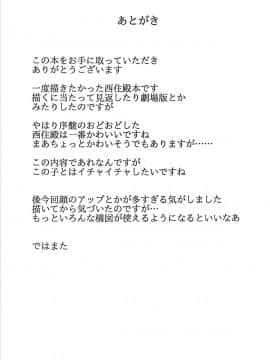 あとがき
この本をお手に取っていただき
ありがとうございます
一度描きたかった西住殿本です
描くに当たって見返したり劇場版とか
みたりしたのですが
やはり序盤のおどおどした
西住殿は一番かわいいですね
まあちょっとかわいそうでもありますが……
この内容であれなんですが
この子とはイチャイチャしたいですね
後今回顔のアップとかが多すぎる気がしました
描いてから気づいたのですが…
もっといろんな構図が使えるようになるといいなあ
ではまた